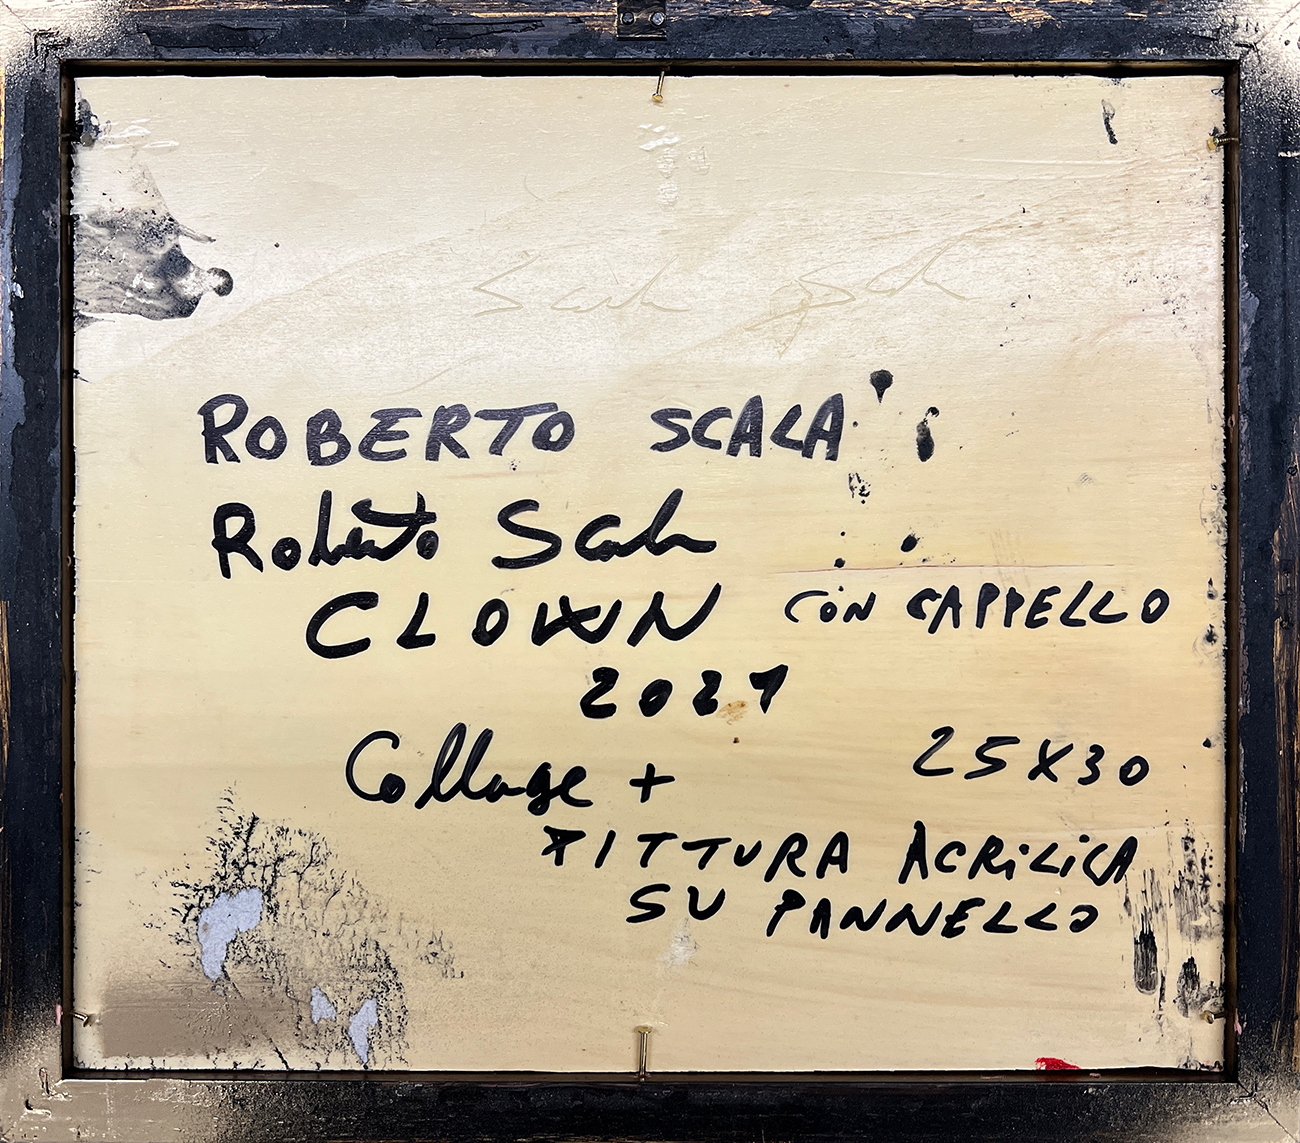 Scala Scala
ROBERTO SCALA
Roberto Scala
CLOWN CON CAPPELLO
2021
Collage + 25X30
PITTURA ACRiLiCA
SU PANNELLO